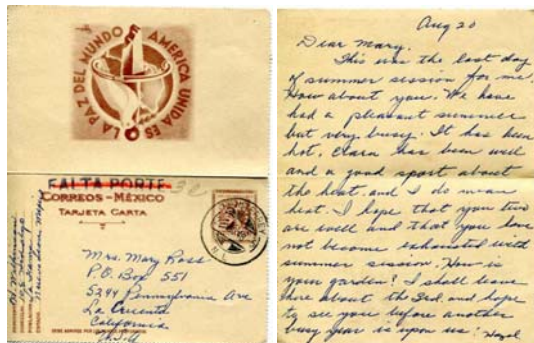 LA PAZ DEL MUNDO
AMERICA UNIDA ES
FALTA PORTE
CORREOS-MÉXICO
TARJETA CARTA
Mrs. Mary Ross
P.O. Box 551
5244 Pennsylvania Ave
La Crescenta
California
U.S.A
Aug 20
Dear Mary,
This was the last day
of summer session for me.
How about you. We have
had a pleasant summer
but very busy. It has been
hot. Clara has been well
and a good sport about
the heat, and I do mean
heat. I hope that you two
are well and that you have
not become exhausted with
summer session. How is
your garden? I shall leave
here about the 2nd. and hope
to see you before another
busy year is upon us!
Hazel